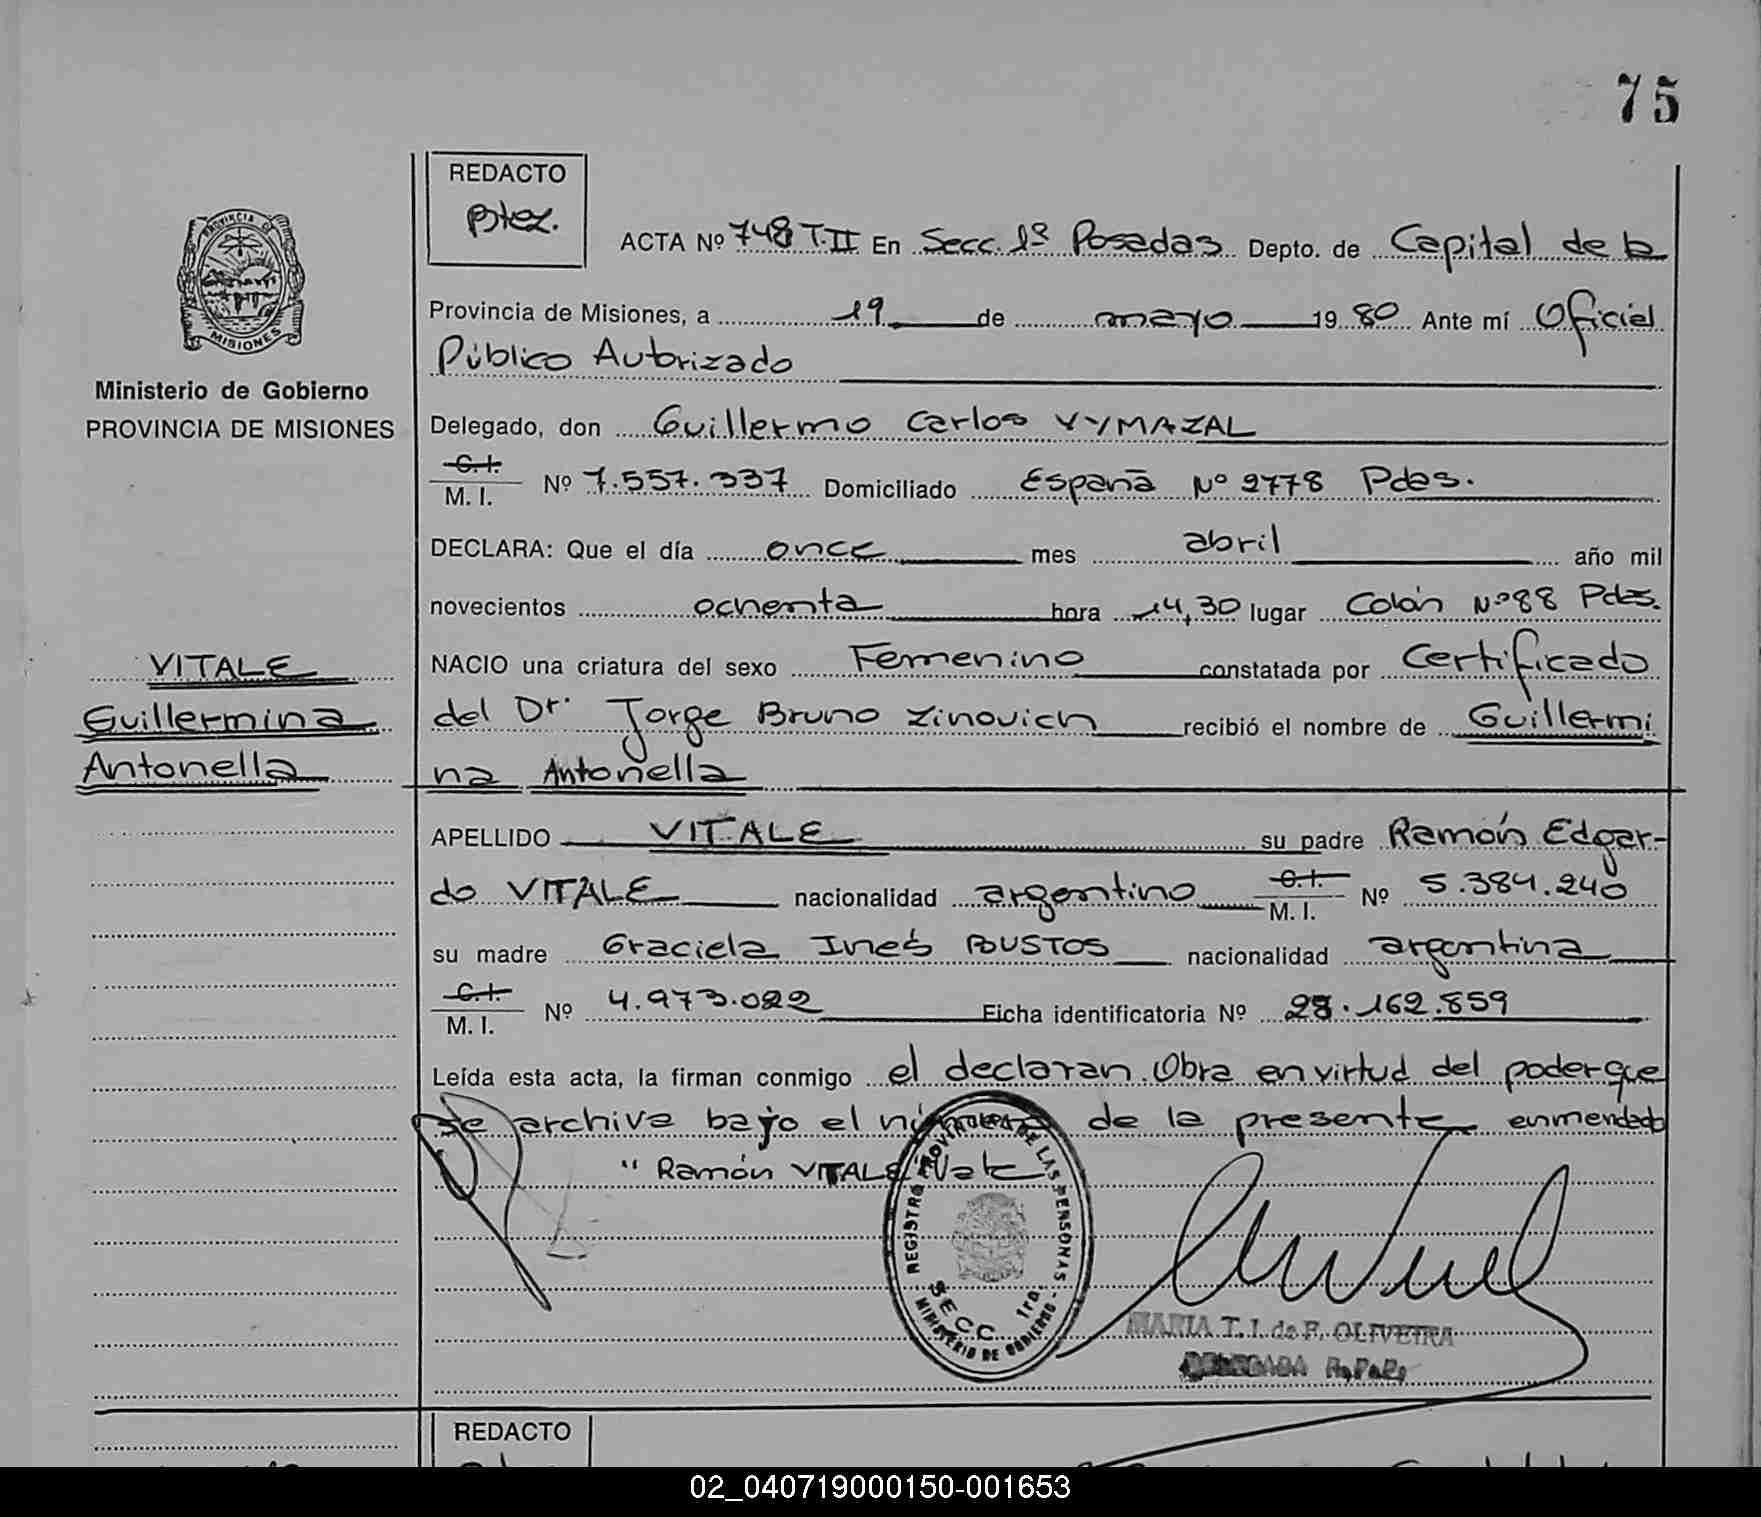 75
REDACTO
Btez.
ACTA Nº 748 T.II En Secc. 1º Posadas Depto. de Capital de la
Provincia de Misiones, a 19 de mayo 19 80 Ante mí Oficial
Público Autorizado
Ministerio de Gobierno
PROVINCIA DE MISIONES
Delegado, don Guillermo Carlos VYMAZAL
C.I.
M. I. Nº 7.557.337 Domiciliado España Nº 2778 Pdas.
DECLARA: Que el día once mes abril año mil
novecientos ochenta hora 14,30 lugar Colón Nº 88 Pdas.
NACIO una criatura del sexo Femenino constatada por Certificado
del Dr. Jorge Bruno Zinovich recibió el nombre de Guillermi
na Antonella
VITALE
Guillermina
Antonella
APELLIDO VITALE su padre Ramón Edgar-
do VITALE nacionalidad argentino C.I. M. I. Nº 5.384.240
su madre Graciela Inés BUSTOS nacionalidad argentina
C.I.
M. I. Nº 4.973.022 Ficha identificatoria Nº 28.162.859
Leída esta acta, la firman conmigo el declaran. Obra en virtud del poder que
se archiva bajo el número de la presente enmendado
" Ramón VITALE Vale
REGISTRO PROVINCIAL DE LAS PERSONAS
SECC. 1ra.
MINISTERIO DE GOBIERNO
MARIA T. I. de F. OLIVEIRA
DELEGADA R.P.P.
REDACTO
02_040719000150-001653